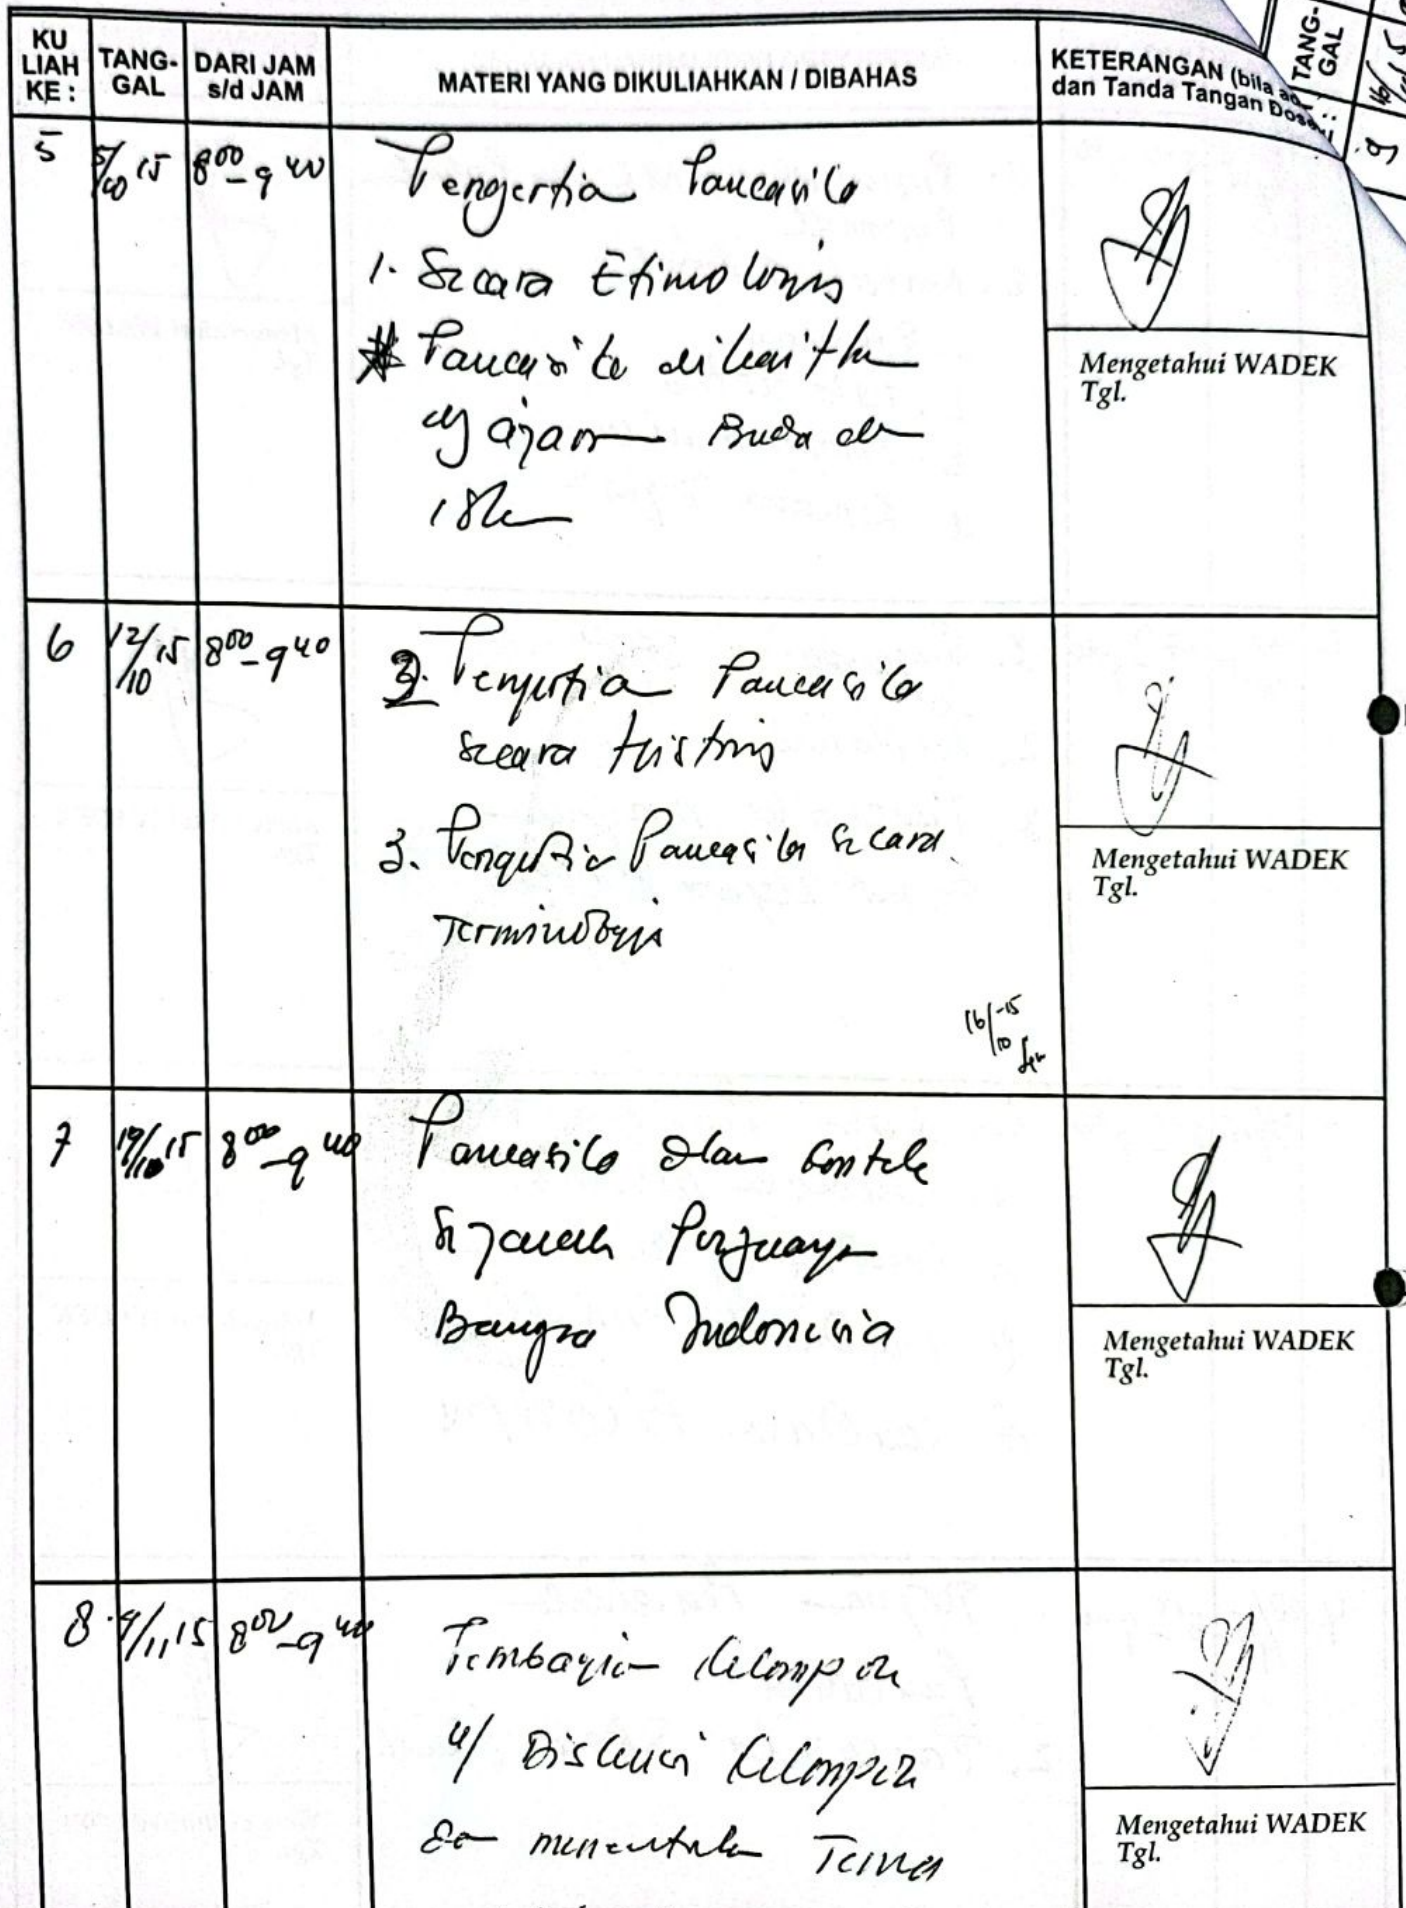 KU LIAH KE :
TANG-GAL
DARI JAM s/d JAM
MATERI YANG DIKULIAHKAN / DIBAHAS
KETERANGAN (bila
dan Tanda Tangan Dosen
TANG-GAL
5
5/10 15
8 00 - 9 40
Pengertia Pancasila
1. Secara Etimologis
Pancasila dikaitka
dg ajaran Buda da
Mengetahui WADEK
Tgl.
6
12/10 15
8 00 - 9 40
2. Pengertia Pancasila
secara Historis
3. Pengertia Pancasila secara
Terminologis
16/10 -15
Mengetahui WADEK
Tgl.
7
19/10 15
8 00 - 9 40
Pancasila dlam Konteks
Sejarah Perjuanga
Bangsa Indonesia
Mengetahui WADEK
Tgl.
8
9/11 15
8 00 - 9 40
Pembagia Kelompok
u/ Diskusi Kelompok
da menentuka Tema
Mengetahui WADEK
Tgl.